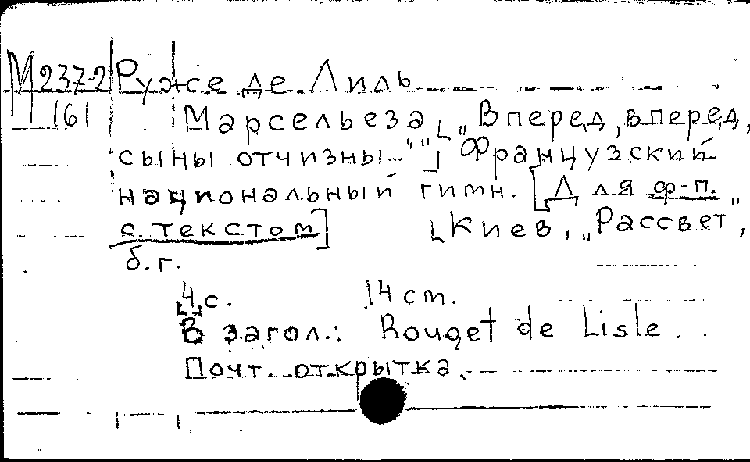 М 237-2 Руже де Лиль
161 Марсельеза [„Вперед, вперед,
сыны отчизны..."] Французский
национальный гимн. [Для ф-п.
с текстом] [Киев, „Рассвет",
б.г.
[4]с. 14 cm.
В загол.: Rouget de Lisle.
Почт. открытка.